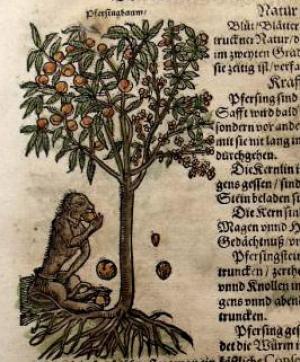 Pfersingbaum/
Natur
Blüt/Blätter
truckner Natur/d
im zweyten Grad
sie zeitig ist/verfa
Kräf
Pfersing sind
Safft wird bald
sondern vor ande
mit sie nit lang in
durchgehen.
Die Kernlin i
gens gessen/sind
Stein beladen si
Die Kern sind
Magen vnnd H
Gedächtnuß/v
Pfersingstein
truncken/zerthe
vnnd Knollen in
gens vnnd aben
truncken.
Pfersing ge
det die Würm i